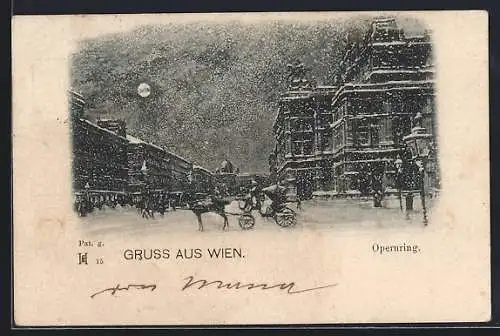 Pat. g.
15
GRUSS AUS WIEN.
Opernring.